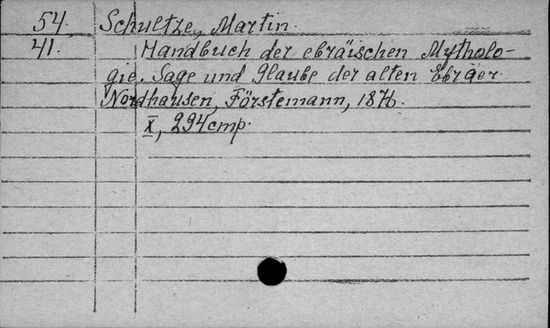 54. Schultze, Martin.
41. Handbuch der ebräischen Mytholo-
gie. Sage und Glaube der alten Ebräer.
Nordhausen, Förstemann, 1876.
X, 294 стр.